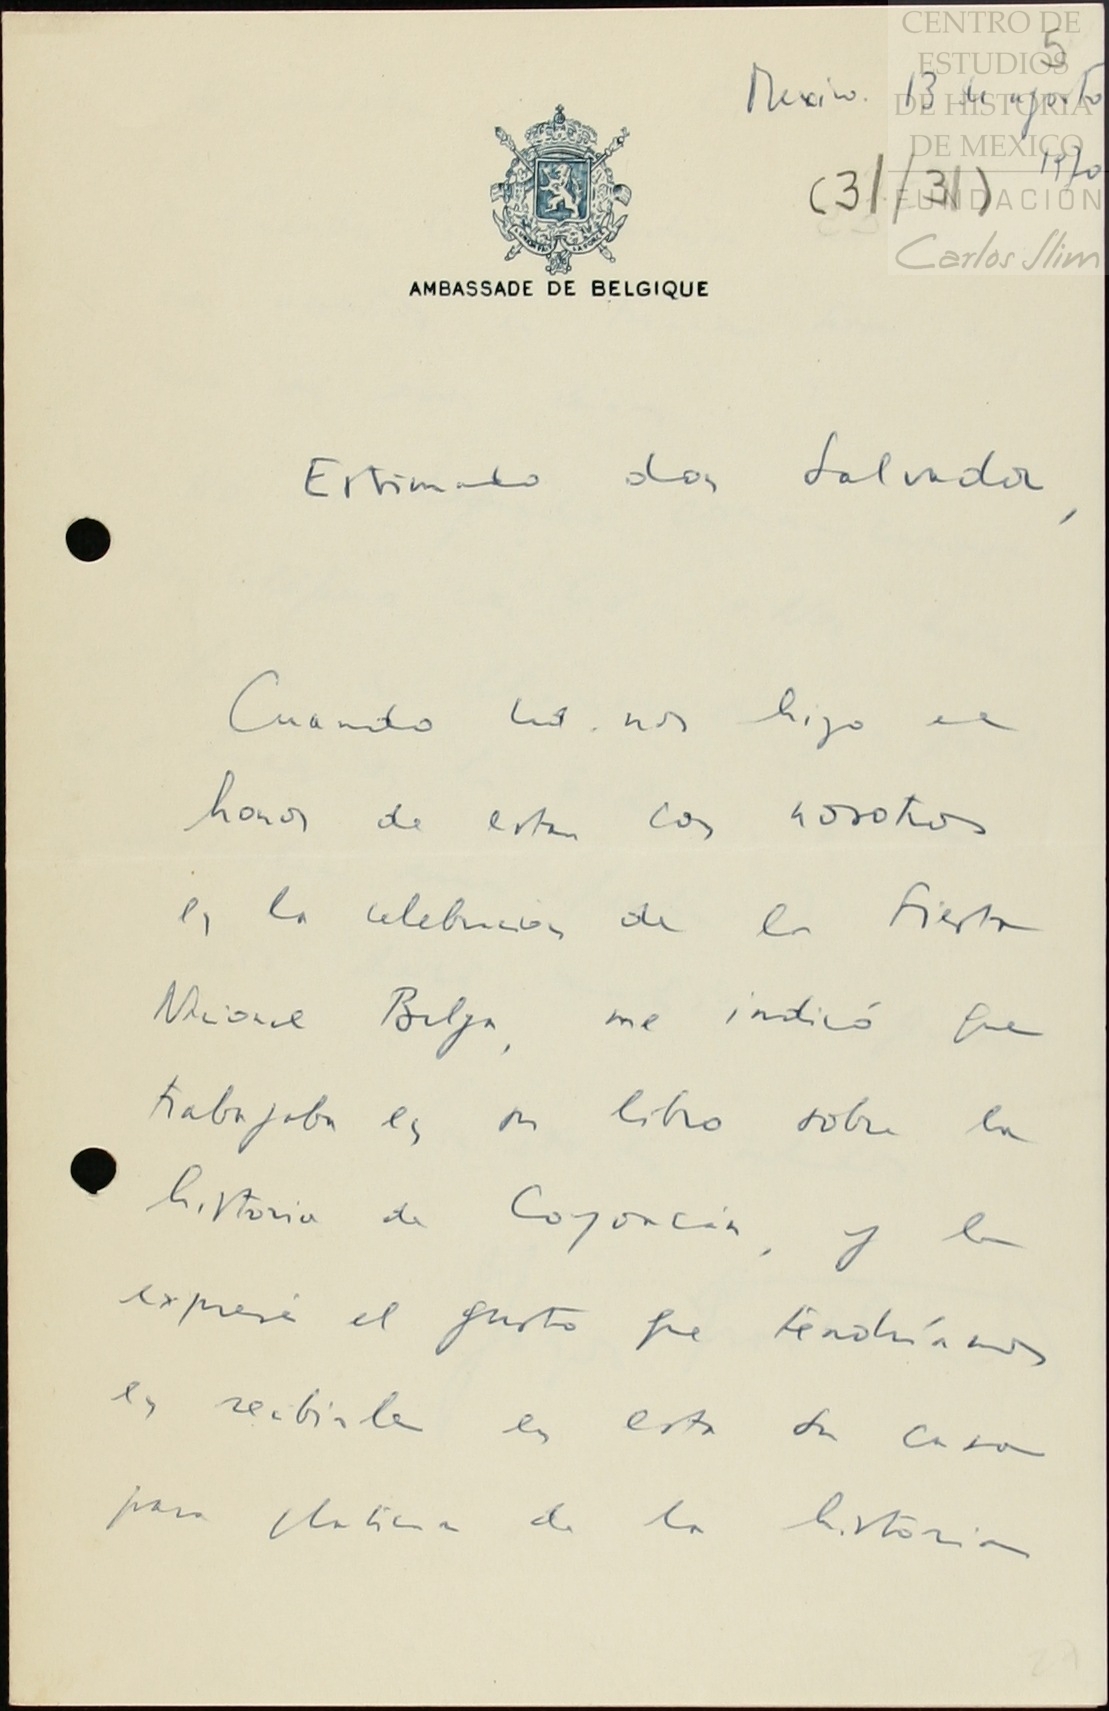 CENTRO DE
ESTUDIOS
DE HISTORIA
DE MEXICO
FUNDACIÓN
Carlos Slim
5
Mexico. 13 de agosto
1970
(31/31)
L'UNION FAIT LA FORCE
AMBASSADE DE BELGIQUE
Estimado don Salvador,
Cuando Ud. nos hizo el
honor de estar con nosotros
en la celebracion de la Fiesta
Nacional Belga, me indicó que
trabajaba en su libro sobre la
historia de Coyoacán, y le
expresé el gusto que tendríamos
en recibirle en esta su casa
para platicar de la historia
27